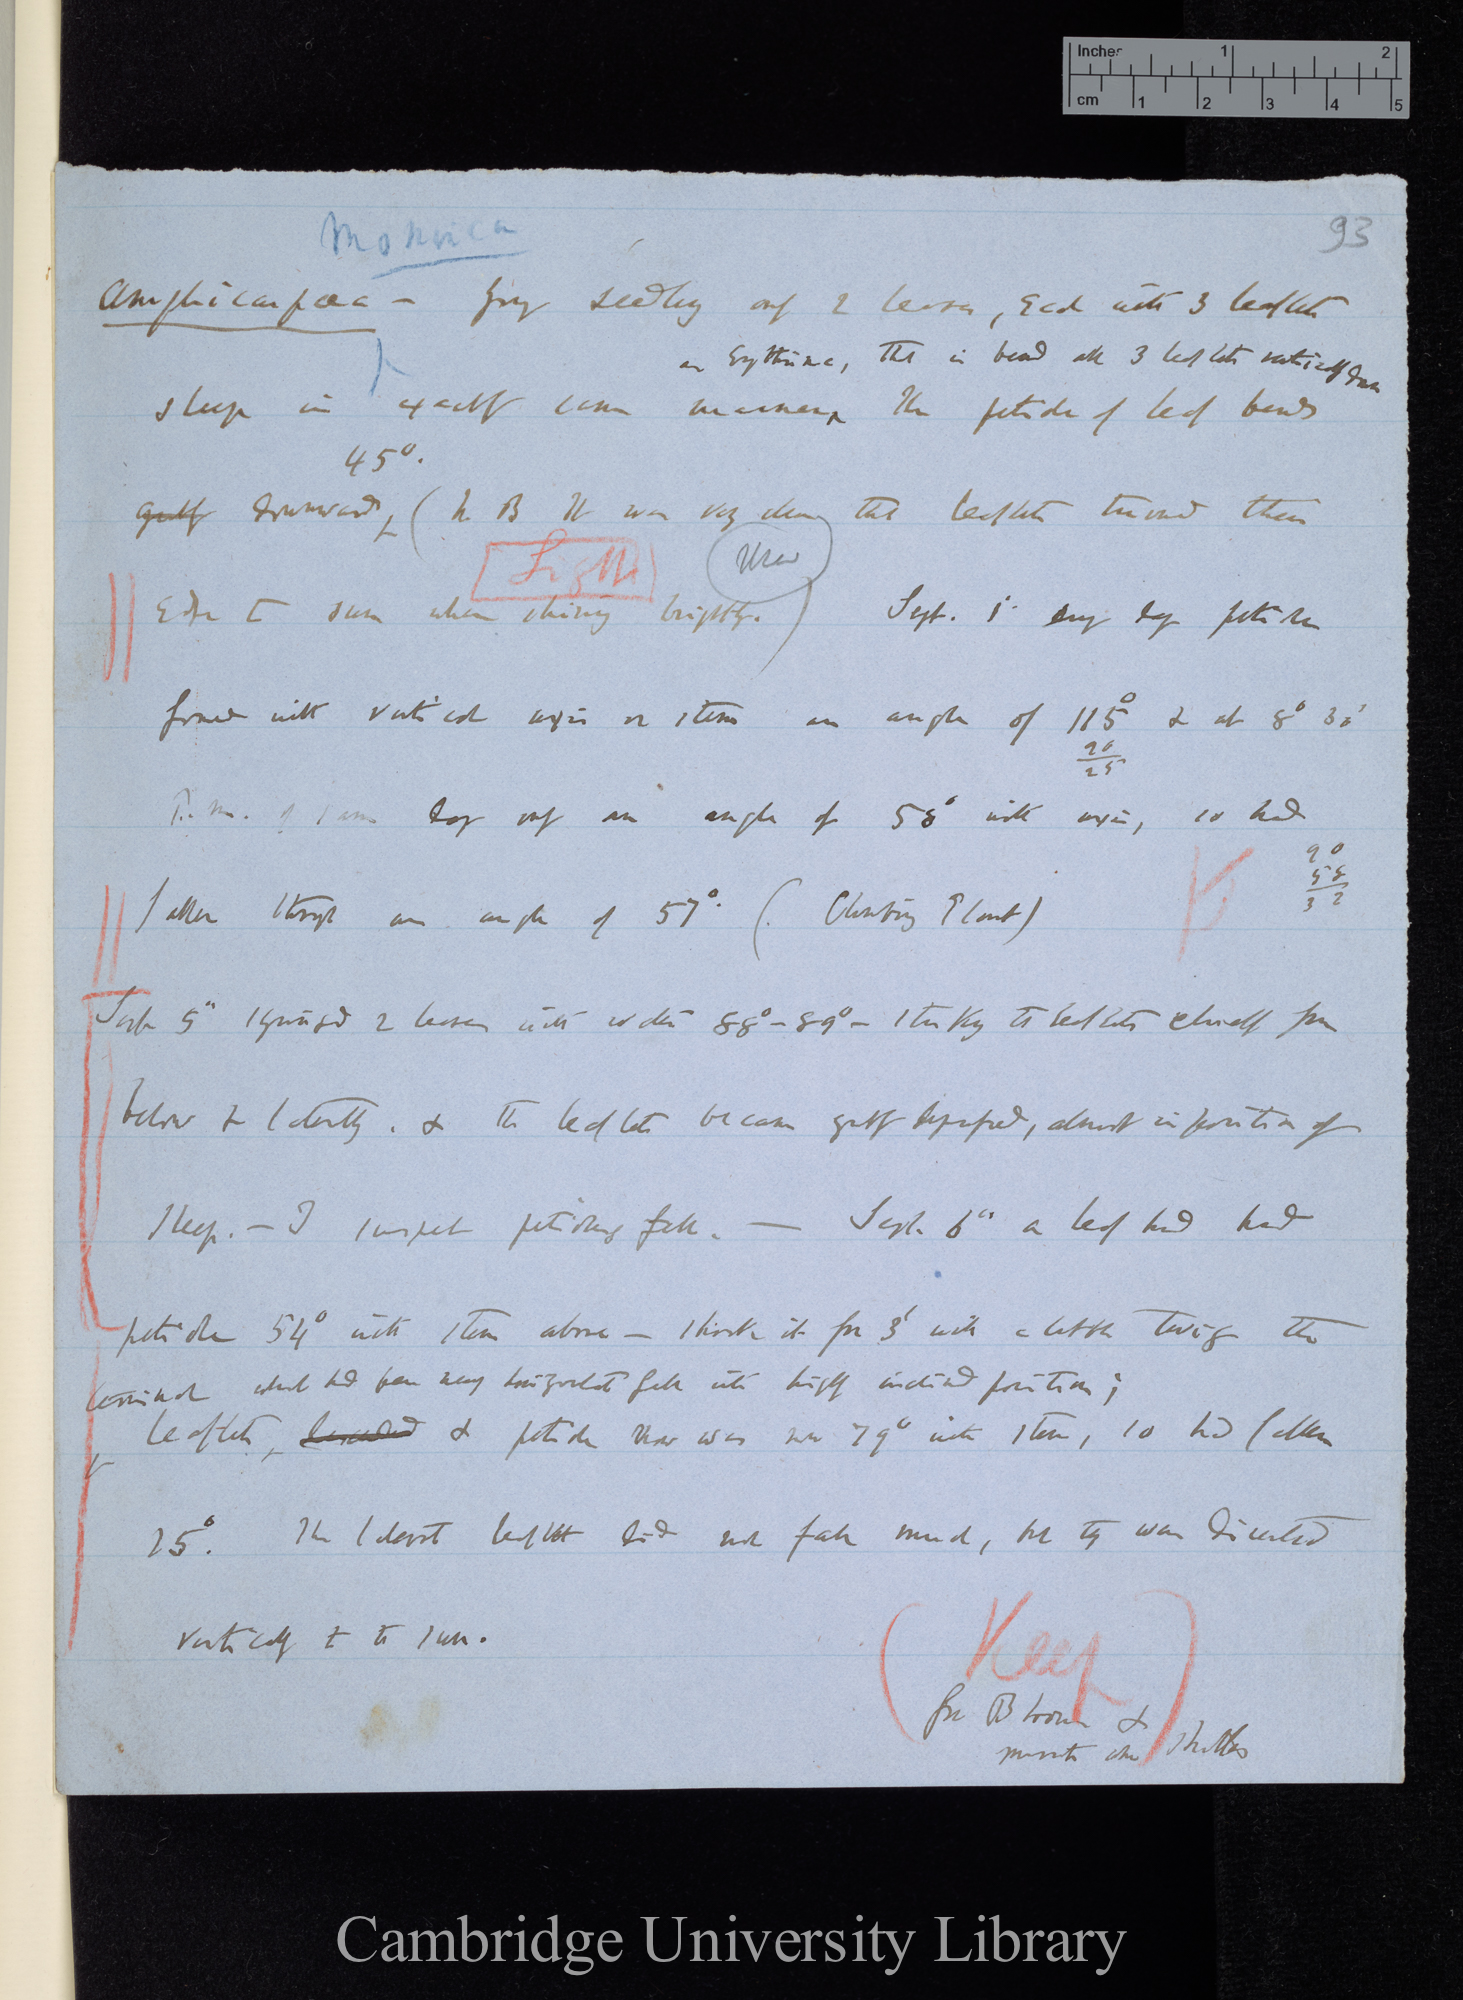 Inches 1 2
cm 1 2 3 4 5
93
Monoica
Amphicarpæa — young seedling only 2 leaves, each with 3 leaflets
as Erythrina, that is bend all 3 leaflets vertically down
sleep in exactly same manner, The petiole of leaf bends
45°.
greatly downwards, (N B It was very clear that leaflets turned their
Light
New
edge to sun when shining brightly.) Sept. during day petiole
formed with vertical axis or stem an angle of 115° & at 8° 30'
90
25
P.m. of same day only an angle of 58° with axis, so had
90
58
32
fallen through an angle of 57°. (Climbing Plant)
Sept 5th syringed 2 leaves with water 88°–89° — striking the leaflets chiefly from
below & laterally. & the leaflets became greatly depressed, almost in position of
sleep. — I suspect petioles fell. — Sept. 6th a leaf had had
petiole 54° with stem above — shook it for 3' with a little twig the
terminal which had been nearly horizontal fell into highly inclined position;
leaflet, & petiole now was now 79° with stem, so had fallen
25°. The lateral leaflets did not fall much, but they were directed
vertically to the sun.
Keep
for Bloom &
Cambridge University Library